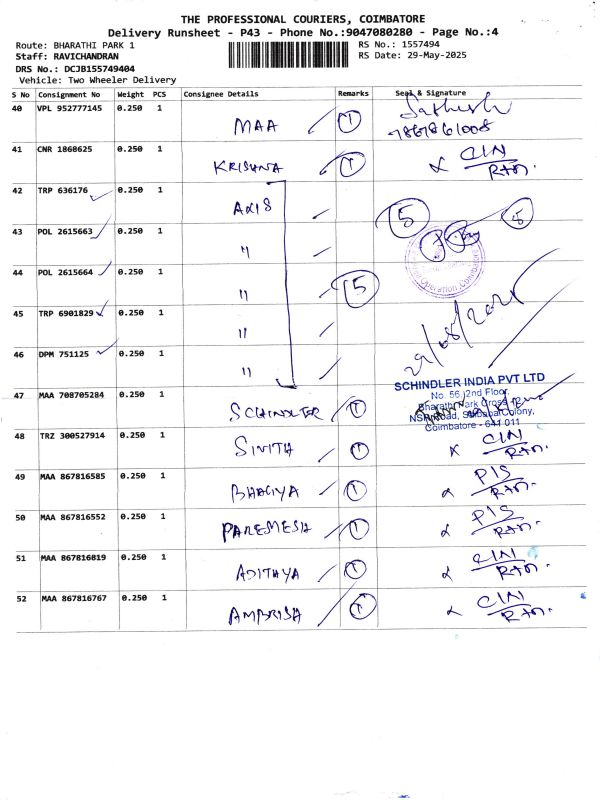 THE PROFESSIONAL COURIERS, COIMBATORE
Delivery Runsheet - P43 - Phone No.:9047080280 - Page No.:4
Route: BHARATHI PARK 1
RS No.: 1557494
Staff: RAVICHANDRAN
RS Date: 29-May-2025
DRS No.: DCJB155749404
Vehicle: Two Wheeler Delivery
S No Consignment No Weight PCS Consignee Details Remarks Seal & Signature
40 VPL 952777145 0.250 1 MAA 1 Sathesh
7867861008
41 CNR 1868625 0.250 1 KRISHNA 1 CIN
42 TRP 636176 0.250 1 AXIS 5 5
43 POL 2615663 0.250 1 "
44 POL 2615664 0.250 1 " 5
45 TRP 6901829 0.250 1 "
46 DPM 751125 0.250 1 "
SCHINDLER INDIA PVT LTD
No. 56, 2nd Floor,
Bharathi Park Cross
47 MAA 708705284 0.250 1 SCHINDLER 1
NSR Road, Saibaba Colony,
Coimbatore - 641 011
48 TRZ 300527914 0.250 1 SINITH 1 CIN
49 MAA 867816585 0.250 1 BHAGIYA 1 PIS
50 MAA 867816552 0.250 1 PAREMESH 1 PIS
51 MAA 867816819 0.250 1 ADITHYA 1 CIN
52 MAA 867816767 0.250 1 AMBRISH 1 CIN